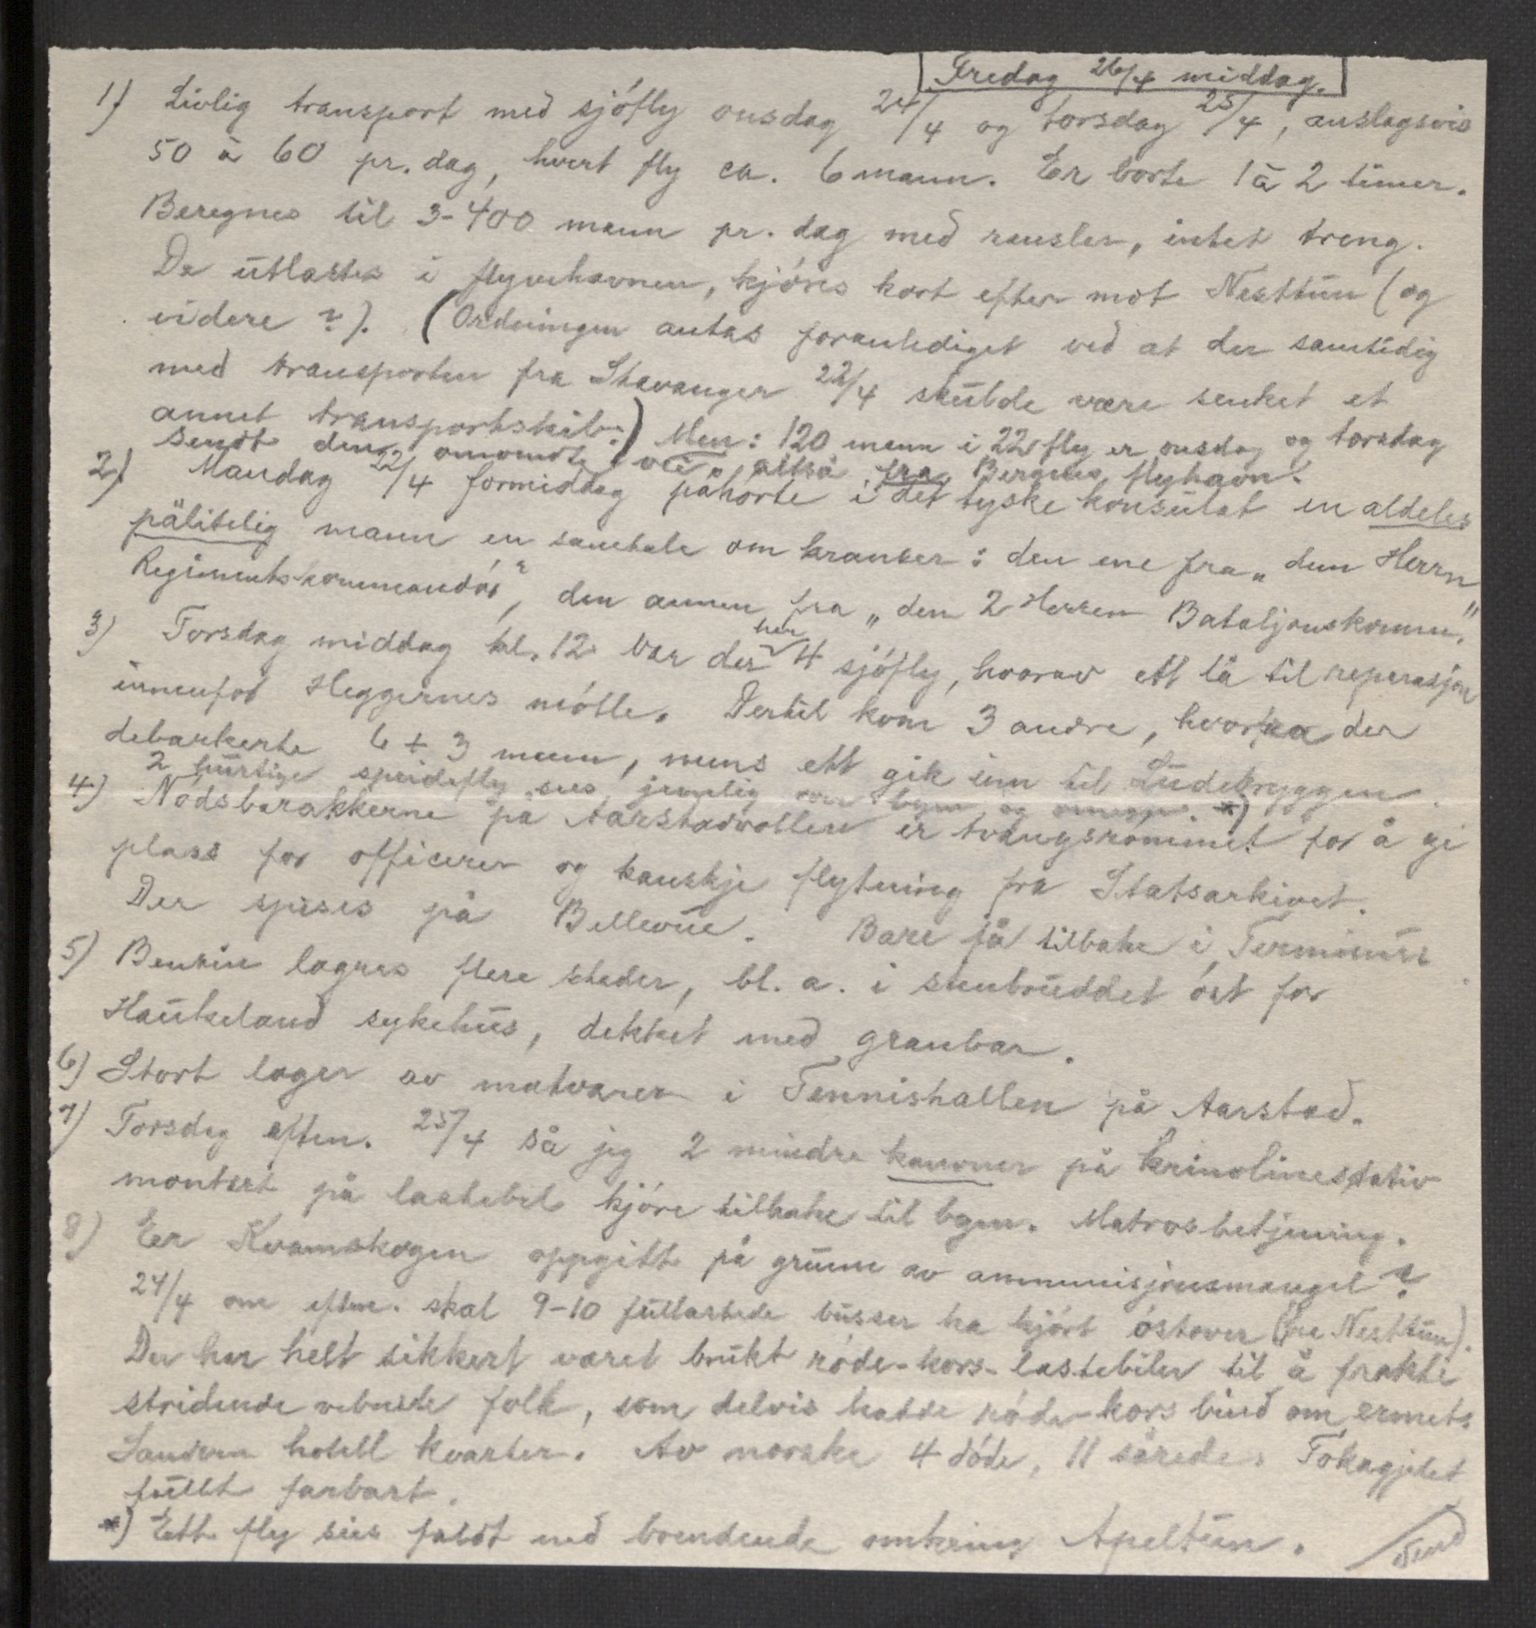 Fredag 26/4 middag.
1) Livlig transport med sjöfly onsdag 24/4 og torsdag 25/4, anslagsvis
50 à 60 pr. dag, hvert fly ca. 6 mann. Er borte 1 à 2 timer.
Beregnes til 3-400 mann pr. dag med ransler, intet treng.
De utlastes i flyvehavnen, kjöres kort efter mot Nesttun (og
videre ?). (Ordningen antas foranlediget ved at der samtidig
med transporten fra Stavanger 22/4 skulde være senket et
annet transportskib.) Men: 120 mann i 22 fly er onsdag og torsdag
sendt den omvendte vei, altså fra Bergens flyhavn!
2) Mandag 22/4 formiddag påhörte i det tyske konsulat en aldeles
pålitelig mann en samtale om kranser: den ene fra „dem Herrn
Regimentskommandör", den annen fra „den 2 Herren Bataljonskomm."
3) Torsdag middag kl. 12 var der her 4 sjöfly, hvorav ett lå til reparasjon
innenfor Heggernes mölle. Dertil kom 3 andre, hvorfra der
debarkerte 6 + 3 mann, mens ett gik inn til Ludebryggen.
2 hurtige speidefly sees jevnlig over byen og omegn. *)
4) Nødsbarakkerne på Aarstadvollen er tvangsrömmet for å gi
plass for officerer og kanskje flytning fra Statsarkivet.
Der spises på Bellevue. Bare få tilbake i Terminus
5) Bensin lagres flere steder, bl. a. i stenbruddet öst for
Haukeland sykehus, dekket med granbar.
6) Stort lager av matvarer i Tennishallen på Aarstad.
7) Torsdag eftm. 25/4 så jeg 2 mindre kanoner på krinolinestativ
montert på lastebil kjöre tilbake til byen. Matrosbetjening.
8) Er Kvamskogen oppgitt på grunn av ammunisjonsmangel?
24/4 om eftm. skal 9-10 fullastede busser ha kjört östover (fra Nesttun).
Der har helt sikkert været brukt röde-kors-lastebiler til å frakte
stridende vebnede folk, som delvis hadde röde-kors bind om ermet.
Sandven hotell kvarter. Av norske 4 döde, 11 sårede. Tokagjelet
fullt farbart.
*) Ett fly sies faldt ned brendende omkring Apeltun.